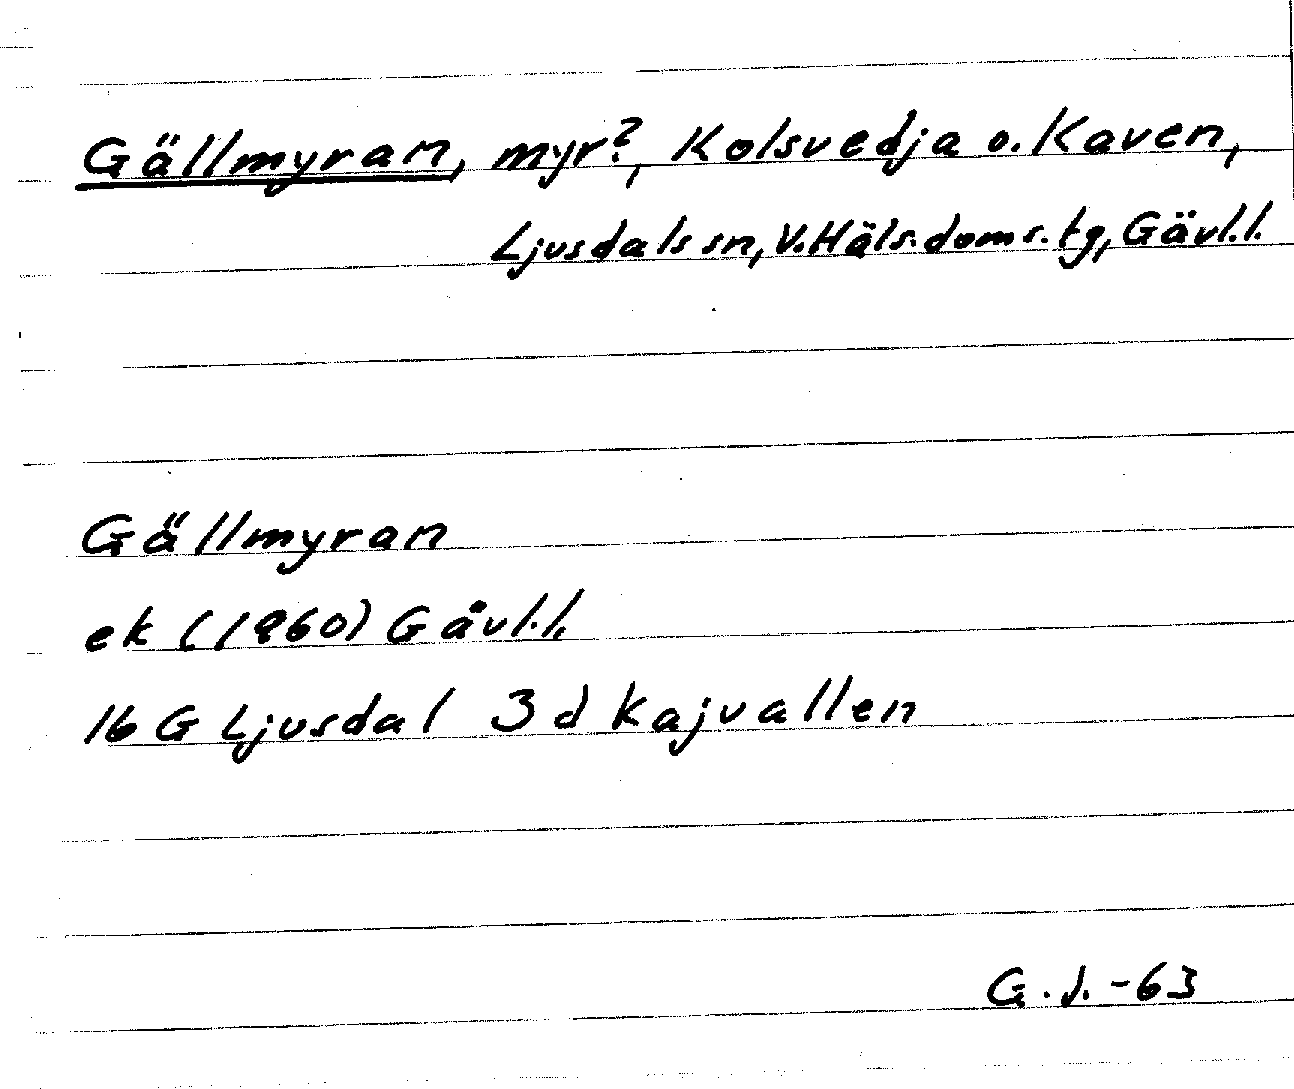 Gällmyran, myr?, Kolsvedja o. Kaven,
Ljusdals sn, V. Häls. doms. tg, Gävl.l.
Gällmyran
ek (1960) Gävl.l.
16 G Ljusdal 3 d Kajvallen
G.J.-63